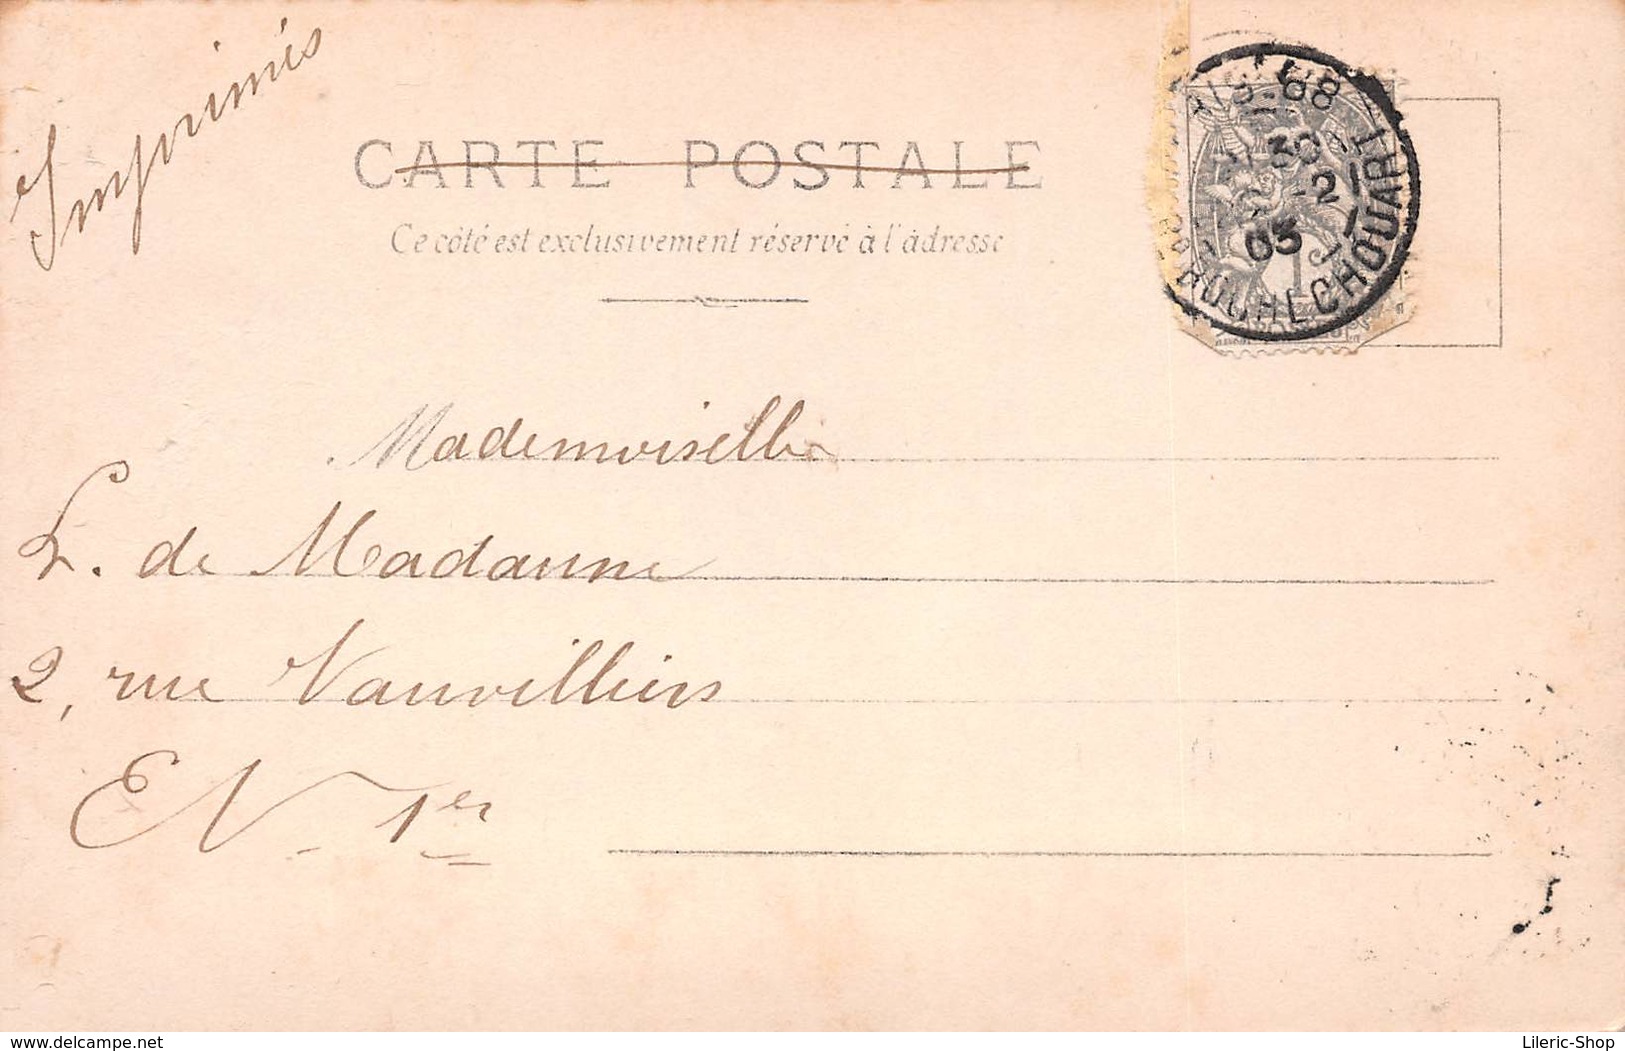 Imprimés
CARTE POSTALE
Ce côté est exclusivement réservé à l'adresse
68
30
2
03
ROCHECHOUART
Mademoiselle
L. de Madaune
2, rue Vauvilliers
EV. 1er
delcampe.net
Lileric-Shop